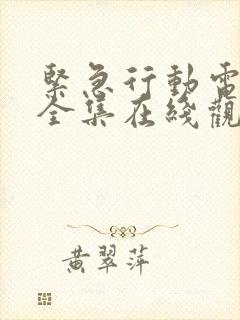 緊急行動電
全集在綫觀
黄翠萍